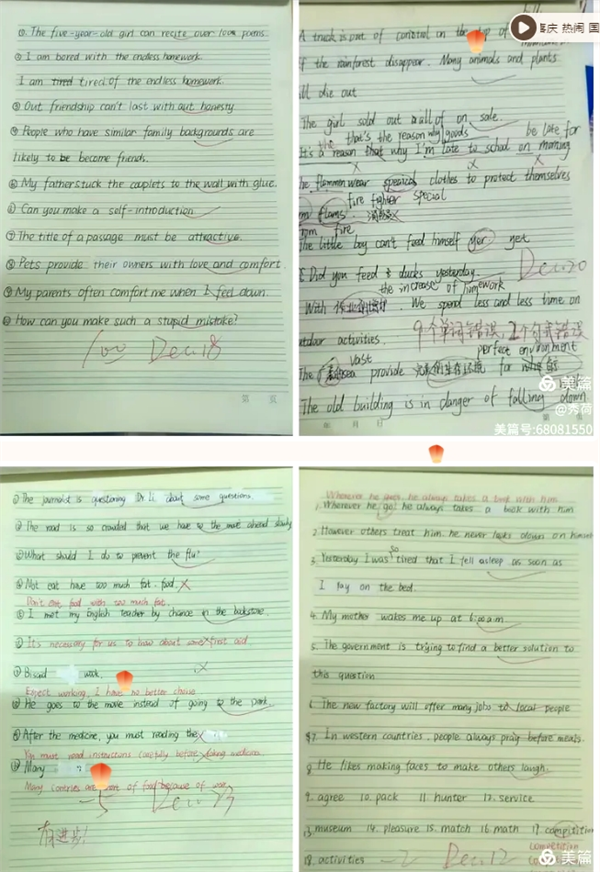 ①. The five-year-old girl can recite over love poems.
② I am bored with the endless homework.
I am tired of the endless homework.
③ Out friendship can't last with out honesty
④ People who have similar family backgrounds are
likely to be become friends.
⑤ My father stuck the couplets to the wall with glue.
⑥ Can you make a self-introduction
⑦ The title of a passage must be attractive.
⑧ Pets provide their owners with love and comfort.
⑨ My parents often comfort me when I feel down.
⑩ How can you make such a stupid mistake?
100 Dec.18
第 页
重庆 热闹 国
A truck is out of control on the top of
If the rainforest disappear. Many animals and plants
will die out
The girl sold out all of on sale.
the that's the reason why goods be late for
It's a reason that why I'm late to school on morning
wear special clothes to protect themselves
fire fighter special
flames
from fire
The little boy can't feed himself yet
Did you feed ducks yesterday. Dec.20
the increase of homework
With We spend less and less time on
outdoor activities. 9个单词错误, 2个句式错误
vast perfect environment
The provide for
The old building is in danger of falling down
年 月 日
美篇
@秀荷
美篇号:68081550
① The journalist is questioning Dr Li about some questions.
② The road is so crowded that we have to move ahead slowly
③ What should I do to prevent the flu?
④ Not eat have too much fat food
Don't eat food with too much fat.
⑤ I met my English teacher by chance in the bookstore.
⑥ It's necessary for us to know about some first aid.
work.
Expect working, I have no better choice
⑧ He goes to the movie instead of going to the park.
⑨ After the medicine, you must reading the
You must read instructions carefully before taking medicine.
⑩ Many
Many countries are short of food because of war.
-5 Dec.
有进步!
Wherever he goes, he always takes a book with him
1. Wherever he go, he always takes a book with him
2. However others treat him. he never looks down on himself
so
3. Yesterday I was tired that I fell asleep as soon as
I lay on the bed.
4. My mother wakes me up at 6:00 a.m
5. The government is trying to find a better solution to
this question
6. The new factory will offer many jobs to local people
7. In western countries. people always pray before meals.
8. He likes making faces to make others laugh.
9. agree 10. pack 11. hunter 12. service
13. museum 14. pleasure 15. match 16. math 17. compitition
competition
18. activities -2 Dec.12
美篇